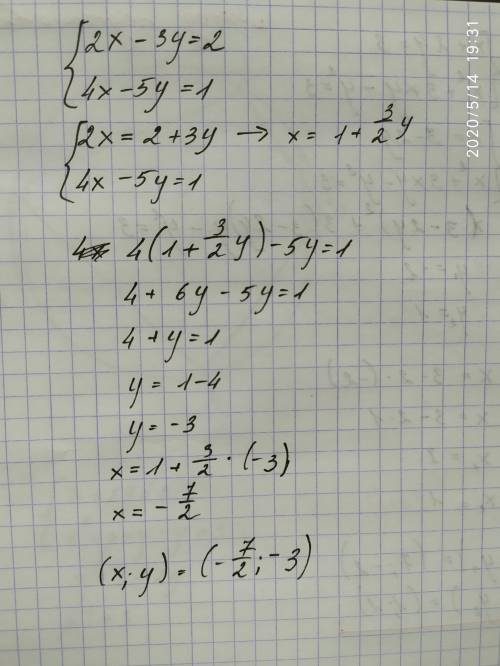 2x - 3y = 2
4x - 5y = 1
2x = 2 + 3y → x = 1 + 3/2 y
4x - 5y = 1
4(1 + 3/2 y) - 5y = 1
4 + 6y - 5y = 1
4 + y = 1
y = 1 - 4
y = -3
x = 1 + 3/2 · (-3)
x = - 7/2
(x; y) = (- 7/2; -3)
2020/5/14 19:31